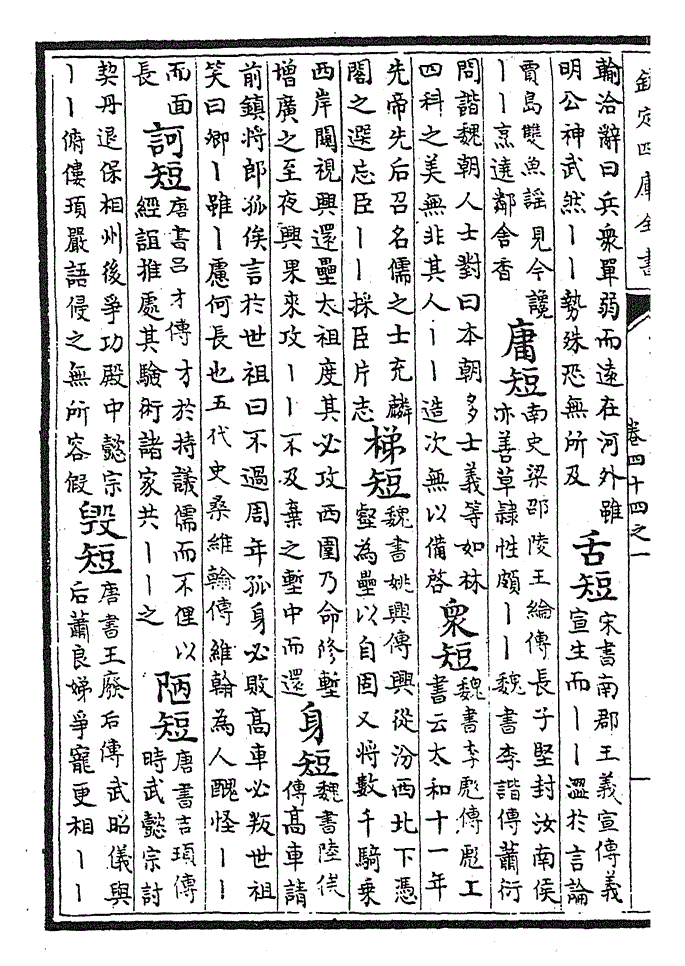 欽定四庫全書
卷四十四之一
輪洽辭曰兵衆單弱而遠在河外雖
明公神武然丨丨勢殊恐無所及
舌短
宋書南郡王義宣傳義
宣生而丨丨澀於言論
賈島雙魚謠見今讒
丨丨烹遶鄰舍香
庸短
南史梁邵陵王綸傳長子堅封汝南侯
亦善草隸性頗丨丨魏書李諧傳蕭衍
問諧魏朝人士對曰本朝多士義等如林
四科之美無非其人丨丨造次無以備啓
衆短
魏書李彪傳彪工
書云太和十一年
先帝先后召名儒之士充麟
閣之選忘臣丨丨採臣片志
梯短
魏書姚興傳興從汾西北下憑
壑為壘以自固又将數千騎乗
西岸闚視興還壘太祖度其必攻西圍乃命修塹
增廣之至夜興果來攻丨丨不及棄之塹中而還
身短
魏書陸俟
傳高車請
前鎮将郎孤俟言於世祖曰不過周年孤身必敗高車必叛世祖
笑曰卿丨雖丨慮何長也五代史桑維翰傳維翰為人醜怪丨丨
而面
長
訶短
唐書吕才傳才於持議儒而不俚以
經誼推處其驗術諸家共丨丨之
陋短
唐書吉頊傳
時武懿宗討
契丹退保相州後爭功殿中懿宗
丨丨俯僂頊嚴語侵之無所容假
毁短
唐書王廢后傳武昭儀與
后蕭良娣爭寵更相丨丨